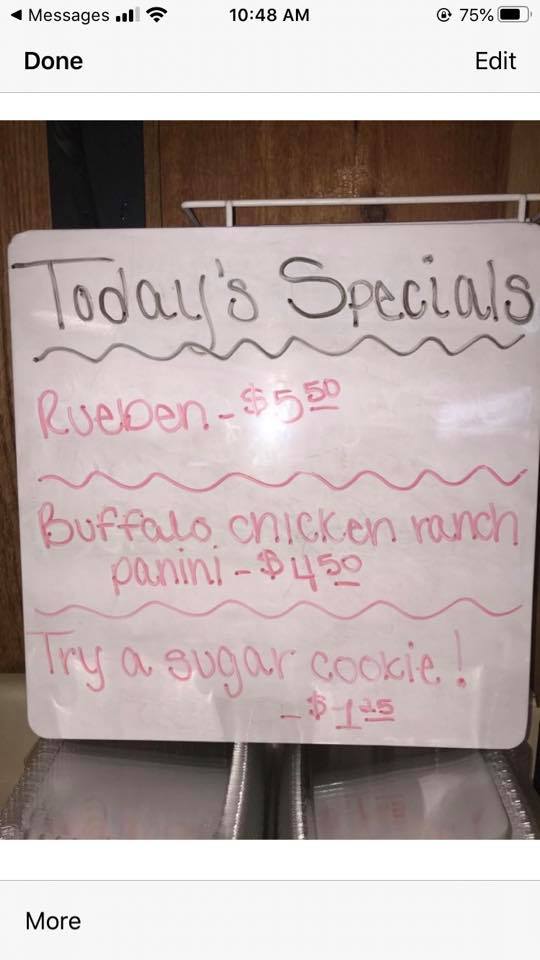 Messages 10:48 AM 75%
Done Edit
Today's Specials
Rueben - $5 50
Buffalo chicken ranch
panini - $4 50
Try a sugar cookie!
- $1 25
More